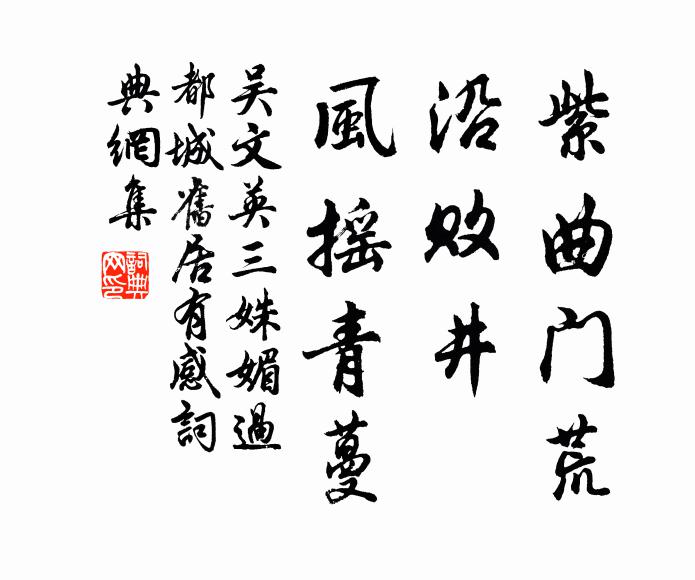 紫曲门荒
沿败井
風摇青蔓
吴文英三姝媚過
都城舊居有感詞
典網集
詞典網印